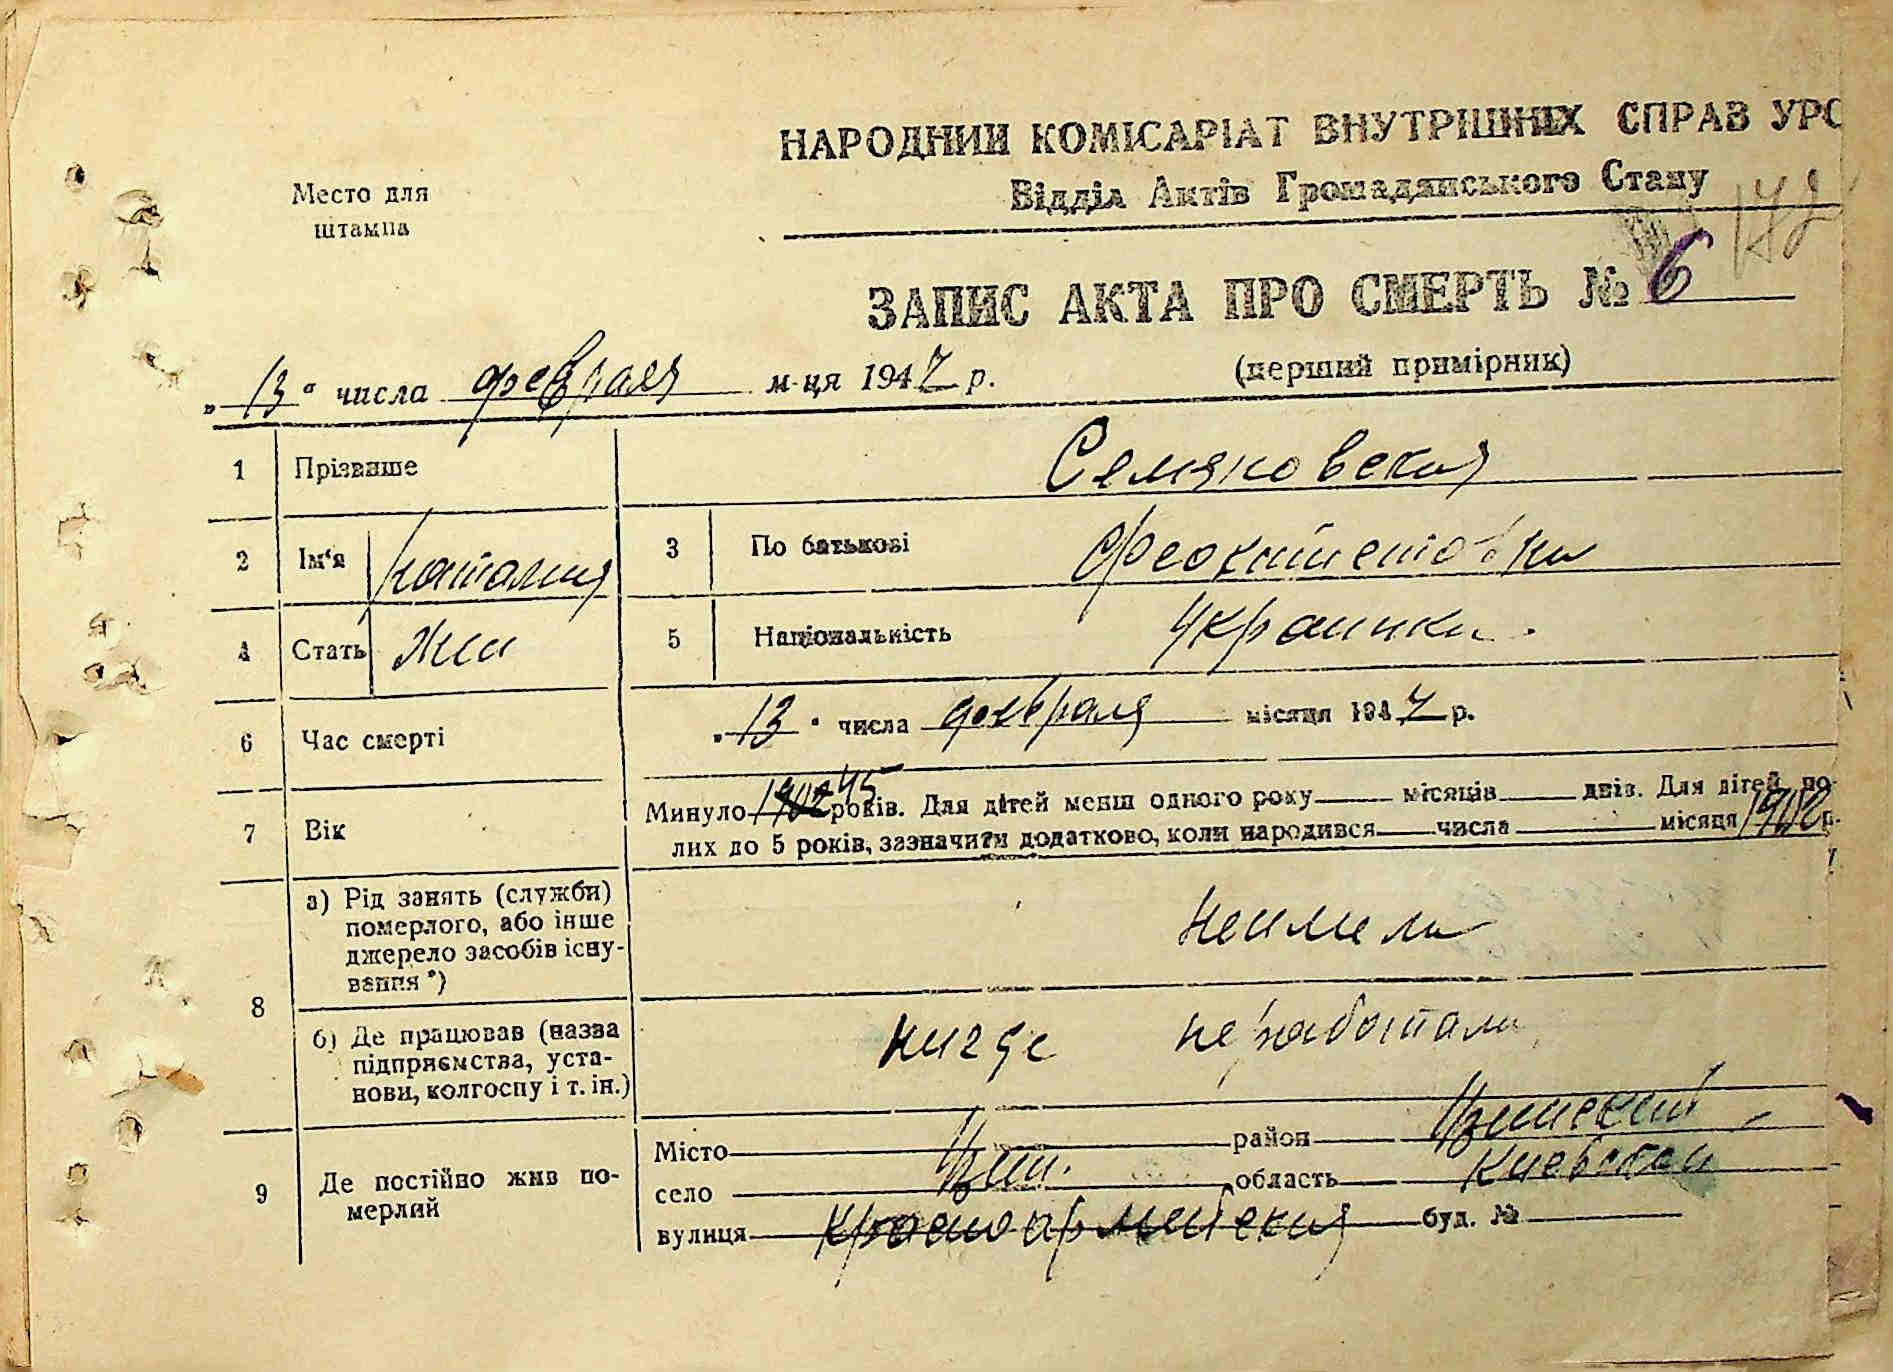 НАРОДНИЙ КОМІСАРІАТ ВНУТРІШНІХ СПРАВ УРС
Место для штампа
Відділ Актів Громадянського Стану
172
ЗАПИС АКТА ПРО СМЕРТЬ № 6
„13" числа февраля м-ця 1947 р. (перший примірник)
1 Прізвище Семяновская
2 Ім'я Наталия 3 По батькові Феоктистовна
4 Стать Жен 5 Національність Украинка.
6 Час смерті „13" числа февраля місяця 1947 р.
7 Вік Минуло 1902 45 років. Для дітей менш одного року місяців днів. Для дітей по-
лих до 5 років, зазначити додатково, коли народився числа місяця 1902 р.
8 а) Рід занять (служби) померлого, або інше джерело засобів існу-вання*) неимела
б) Де працював (назва підприємства, уста-нови, колгоспу і т. ін.) нигде не работала
9 Де постійно жив по-мерлий
Місто район
село область Киевской
вулиця Красноармейская буд. №